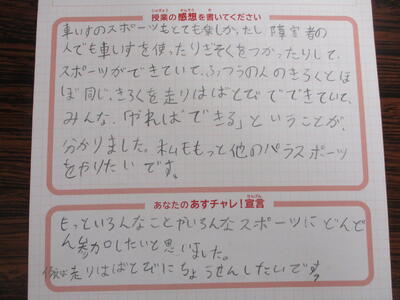 じゅぎょう かんそう か
授業の感想を書いてください
車いすのスポーツもとても楽しかったし、障害者の
人でも車いすを使ったりぎそくをつかったりして、
スポーツができていて、ふつうの人のきろくとほ
ぼ同じ、きろくを走りはばとびでできていて、
みんな、「やればできる」ということが、
分かりました。私ももっと他のパラスポーツ
をやりたいです。
せんげん
あなたのあすチャレ!宣言
もっといろんなことやいろんなスポーツにどんど
ん参加したいと思いました。
例えば走りはばとびにちょうせんしたいです。